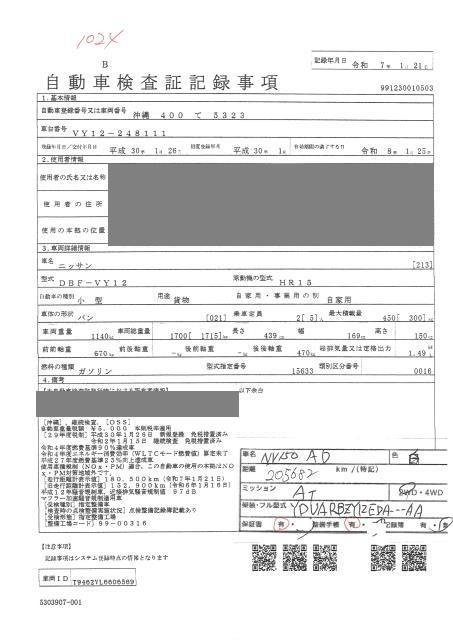 1024
B
記録年月日 令和 7年 1月 21日
自動車検査証記録事項
991230010503
1.基本情報
自動車登録番号又は車両番号 沖縄 400 て 5323
車台番号 VY12-248111
登録年月日/交付年月日 平成 30年 1月 26日 初度登録年月 平成 30年 1月 有効期間の満了する日 令和 8年 1月 25日
2.使用者情報
使用者の氏名又は名称
使用者の住所
使用の本拠の位置
3.車両詳細情報
車名 ニッサン [213]
型式 DBF-VY12 原動機の型式 HR15
自動車の種別 小型 用途 貨物 自家用・事業用の別 自家用
車体の形状 バン [021] 乗車定員 2[ 5]人 最大積載量 450[ 300]kg
車両重量 1140kg 車両総重量 1700[ 1715]kg 長さ 439cm 幅 169cm 高さ 150cm
前前軸重 670kg 前後軸重 -kg 後前軸重 -kg 後後軸重 470kg 総排気量又は定格出力 1.49
燃料の種類 ガソリン 型式指定番号 15633 類別区分番号 0016
4.備考
以下余白
[沖縄],継続検査,[OSS]
自動車重量税額 ¥5,000 本則税率適用
[29年度税制]平成30年1月26日 新規登録 免税措置済み
令和2年1月15日 継続検査 免税措置済み
令和4年度燃費基準90%達成車
令和4年度エネルギー消費効率(WLTCモード燃費値)算定未了
平成27年度燃費基準25%向上達成車
使用車種規制(NOx・PM)適合,この自動車の使用の本拠はNOx・PM対策地域外です。
[走行距離計表示値]180,500km(令和7年1月21日)
[旧走行距離計表示値]152,900km(令和6年1月16日)
平成12年騒音規制車,近接排気騒音規制値 97dB
マフラー加速騒音規制適用車
[受検種別]指定整備車
[検査時の点検整備実施状況]点検整備記録簿記載あり
[受検形態]指定整備工場
[整備工場コード]99-00316
車名 NV150 AD 色 白
距離 205682 km/(特記)
ミッション AT 2WD・4WD
保証書 有・ 整備手帳 有・ 記録簿 有・
[注意事項]
記録事項はシステム登録時点の情報となります
車両ID T9462YL6606569
5303907-001